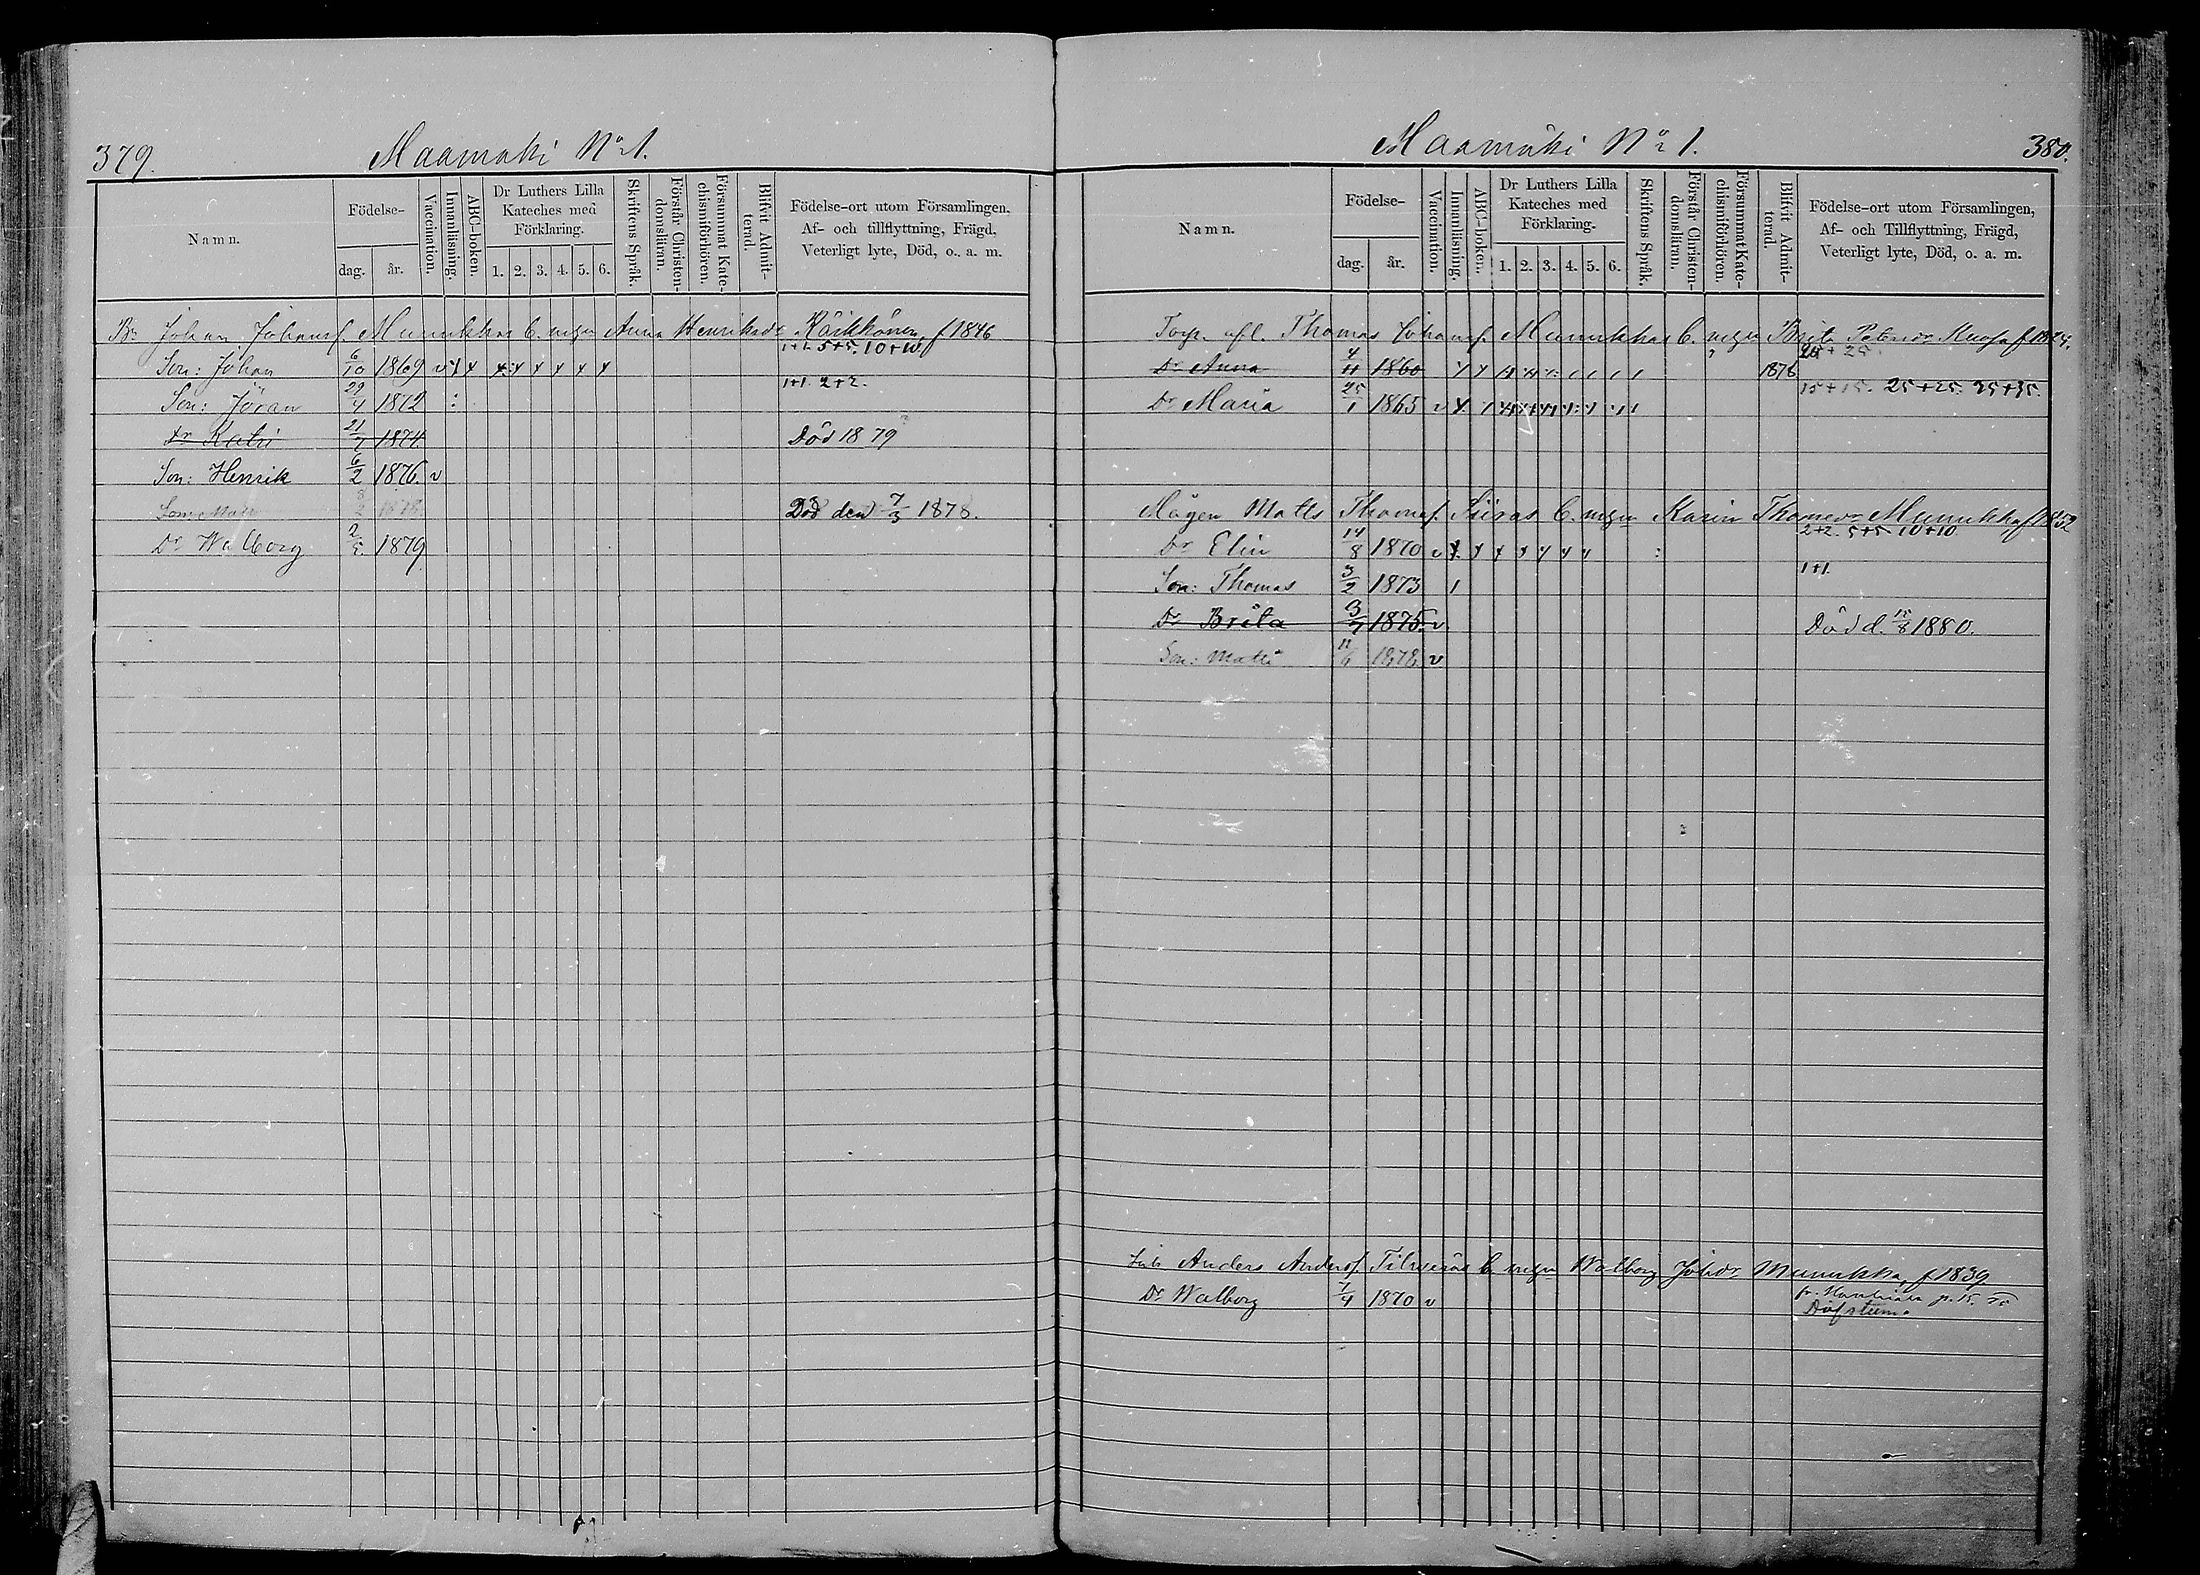 379.
Maamäki No 1.
Namn.
Födelse-
dag.
år.
Vaccination.
Innanläsning.
ABC-boken.
Dr Luthers Lilla
Kateches med
Förklaring.
1. 2. 3. 4. 5. 6.
Skriftens Språk.
Förstår Christen-
domsläran.
Försummat Kate-
chismiförhören.
Blifvit Admit-
terad.
Födelse-ort utom Församlingen,
Af- och tillflyttning, Frägd,
Veterligt lyte, Död, o. a. m.
Br Johan Johansf. Munukka C. mgn Anna Henriksdr Käikkönen f 1846
Son: Johan 6/10 1869 v 1+1. 5+5. 10+10
Son: Jöran 29/4 1872 : 1+1. 2+2.
Dr Katri 21/7 1874 Död 1879
Son: Henrik 6/2 1876. v
Son: Matts 3/2 1878. Död den 7/3 1878.
Dr Walborg 2/5 1879
Maamäki No 1.
380.
Namn.
Födelse-
dag.
år.
Vaccination.
Innanläsning.
ABC-boken.
Dr Luthers Lilla
Kateches med
Förklaring.
1. 2. 3. 4. 5. 6.
Skriftens Språk.
Förstår Christen-
domsläran.
Försummat Kate-
chismiförhören.
Blifvit Admit-
terad.
Födelse-ort utom Församlingen,
Af- och Tillflyttning, Frägd,
Veterligt lyte, Död, o. a. m.
Torp. afl. Thomas Johansf. Munukka C. mgn Brita Petersdr
Dr Anna 4/11 1860 1876 25+25
Dr Maria 25/1 1865 v 15+15. 25+25 35+35.
Mågen Matts Thomasf. Siiras C. mgn Karin Thomasdr Munukka f 1852
Dr Elin 14/8 1870 v 2+2. 5+5 10+10.
Son: Thomas 3/2 1873 1 1+1.
Dr Brita 3/7 1875. v Död d. 15/8 1880.
Son: Matts 11/6 1878, v
Inh Anders Andersf. Tilwiräs C mgn Walborg Johdr Munukka, f 1839
Dr Walborg 7/4 1870 v
Döfstum.